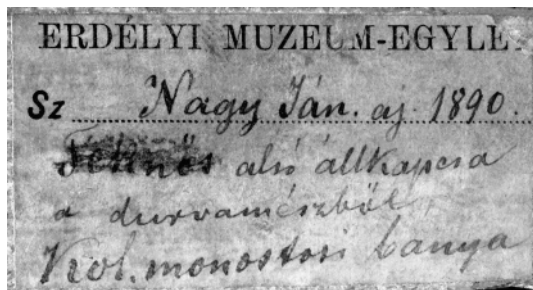 ERDÉLYI MUZEUM-EGYLE
Sz Nagy Ján. aj. 1890.
alsó állkapcsa
a durvamészből,
Kol. monostori bánya